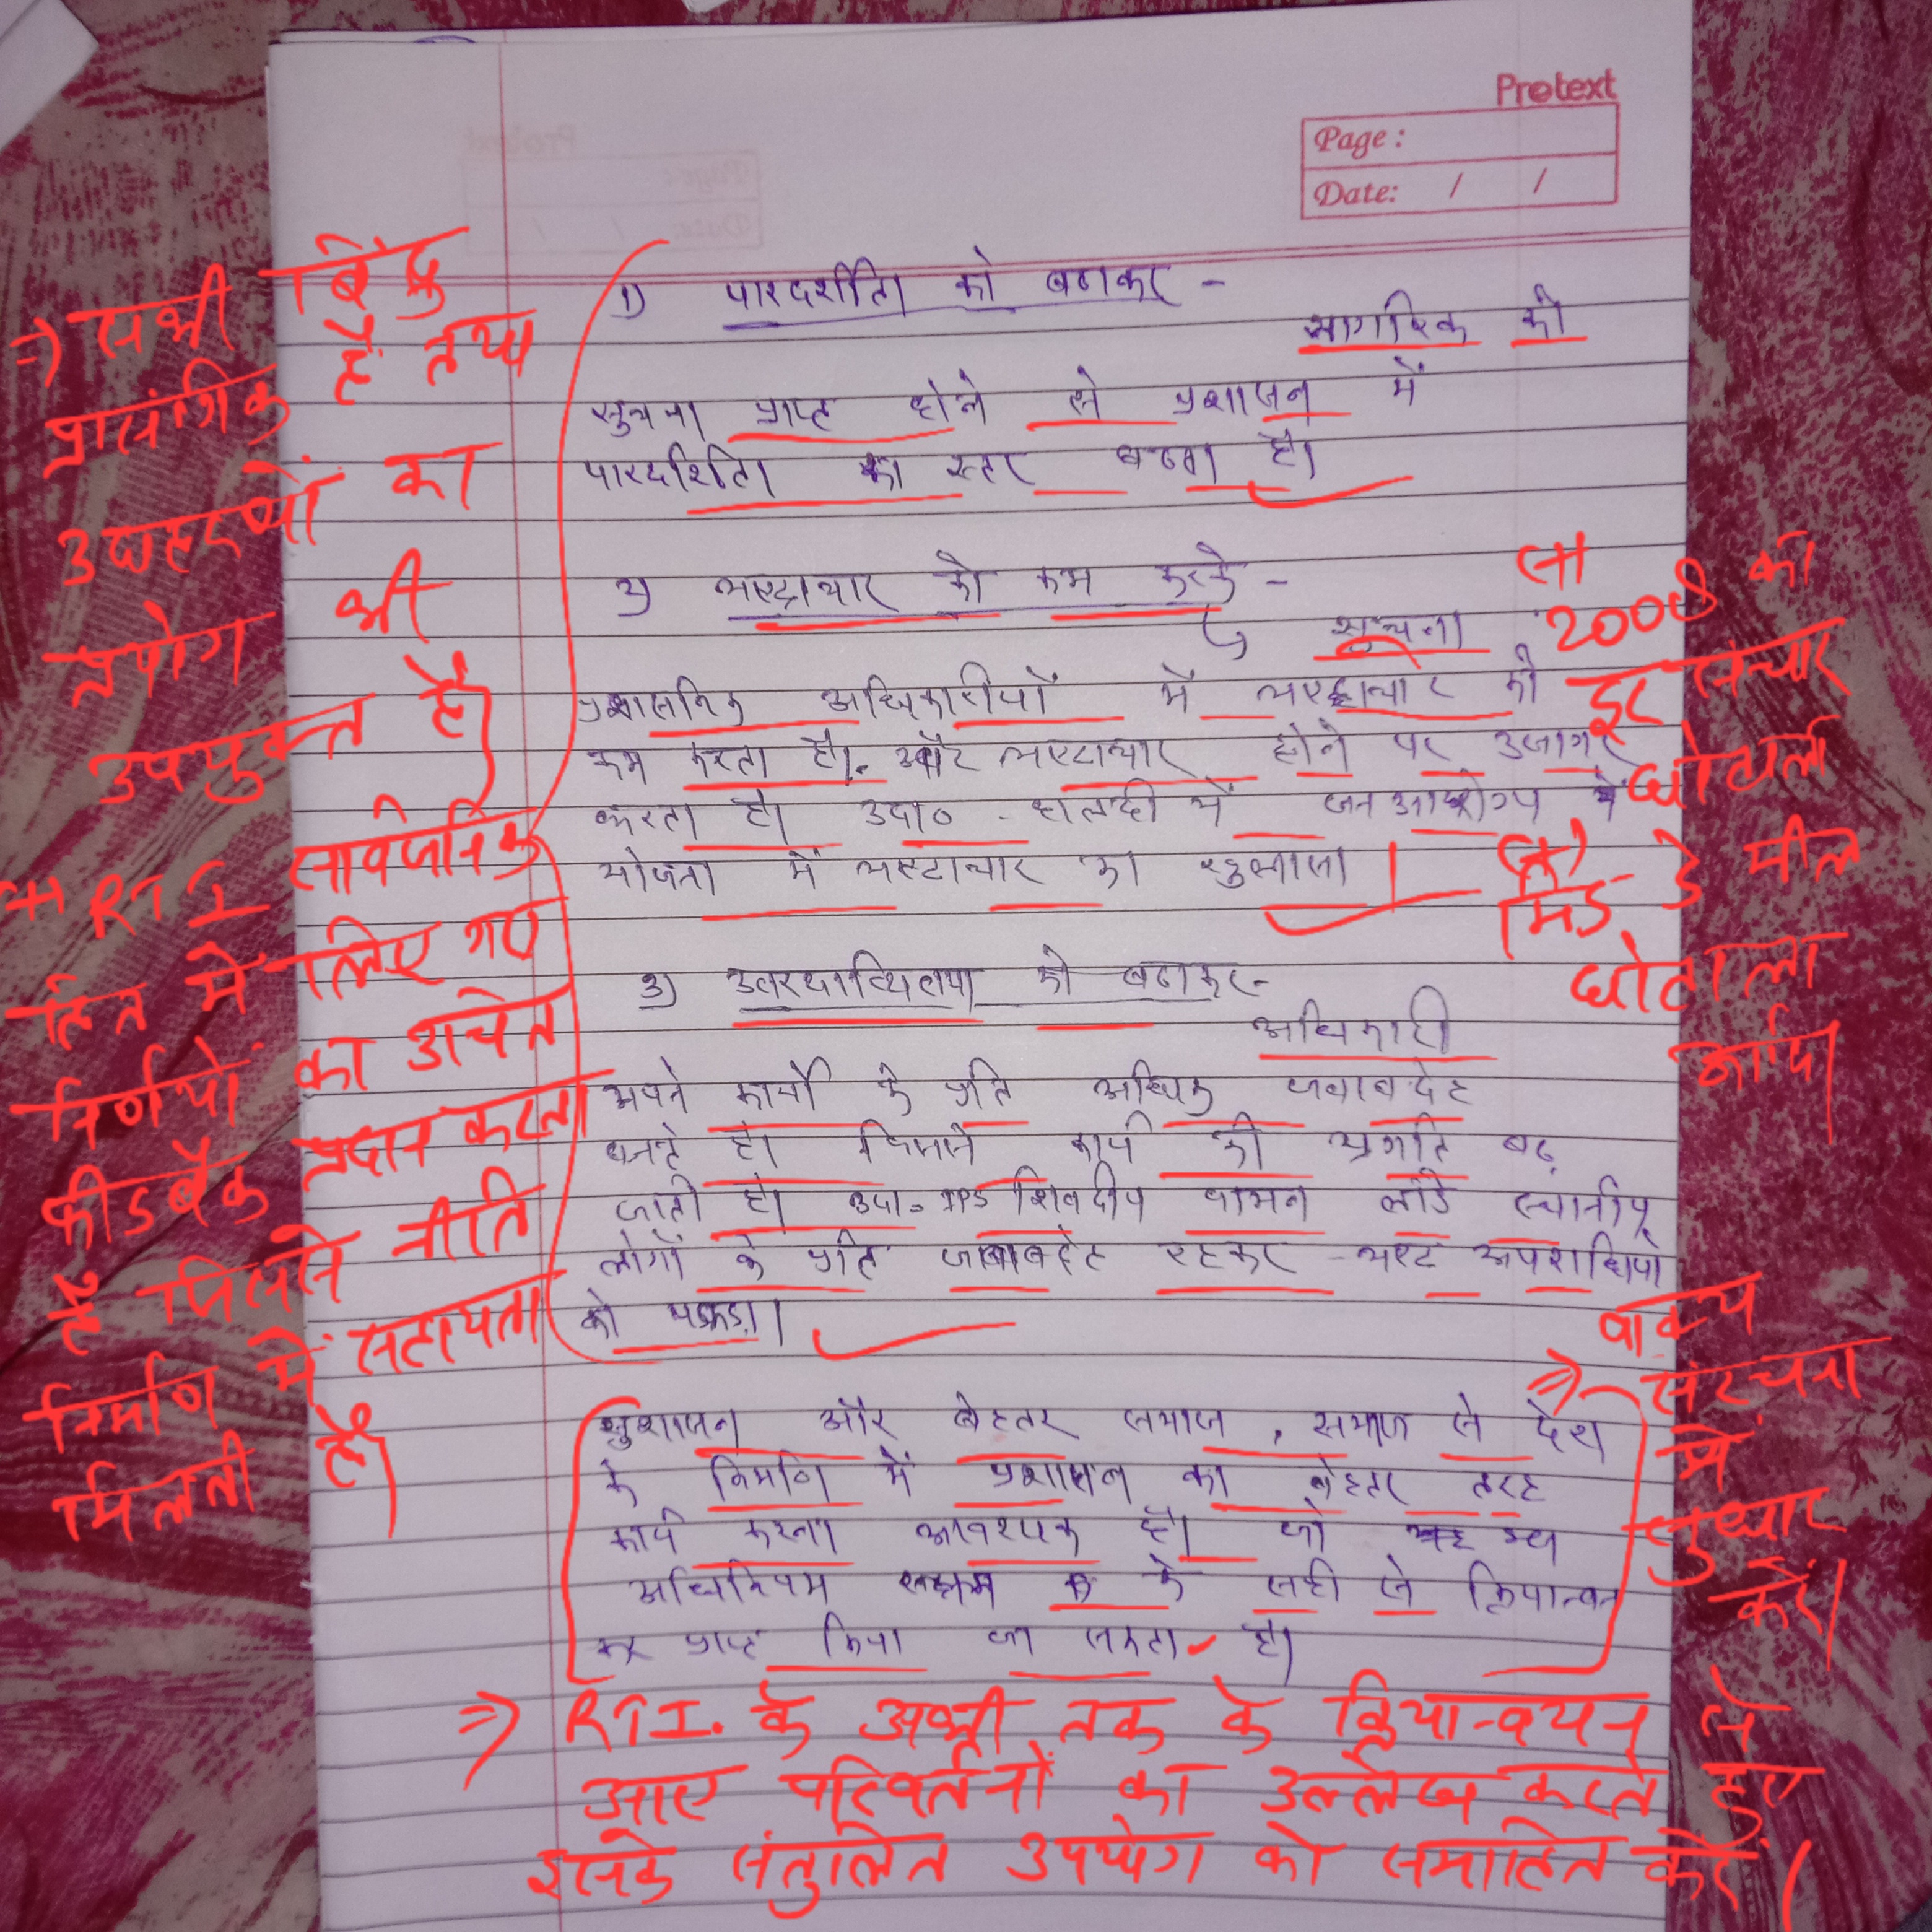 Protext
Page :
Date: / /
1) पारदर्शीता को बढाकर -
नागरिक को
सुचना प्राप्त होने से प्रशासन में
पारदर्शिता का स्तर बढता है।
2) भष्ट्राचार को कम करके -
सूचना
प्रशासनिक अधिकारीयों में भष्ट्राचार को
कम करता है। और भष्टाचार होने पर उजागर
करता है। उदा० - हालही में जन आरोग्य में
योजना में भष्टाचार का खुलासा
3) उतरदायित्वता को बढाकर-
अधिकारी
अपने कार्यो के प्रति अधिक जवाबदेह
बनते है। जिससे कार्य की प्रगति बढ़
जाती है। उदा- IPS शिवदीप वामन लांडे स्थानीय
लोगों के प्रति जवाबदेह रहकर भष्ट अपराधियो
को पकडा।
सुशासन और बेहतर समाज , समाज से देश
के निर्माण में प्रशासन का बेहतर तरह
कार्य करना आवश्यक है। जो यह
अधिनियम के सही से क्रियान्वन
कर प्राप्त किया जा सकता है।
⇒ सभी बिंदु
प्रासंगिक हैं तथा
उदाहरणों का
उपयोग भी
उपयुक्त है।
RTI सार्वजनिक
हित में लिए गए
निर्णयों का उचित
फीडबैक प्रदान करता
है जिससे नीति
निर्माण में सहायता
मिलती है।
2008 का
संचार
घोटाला
मिड डे मील
घोटाला
आदि।
⇒ वाक्य
संरचना
में
सुधार
करें।
⇒ RTI. के अभी तक के क्रियान्वयन से
आए परिवर्तनों का उल्लेख करते हुए
इसके संतुलित उपयोग को समाहित करें।